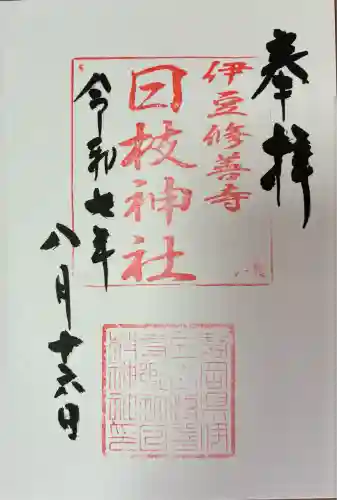 奉拝
伊豆修善寺
日枝神社
令和七年
八月十六日